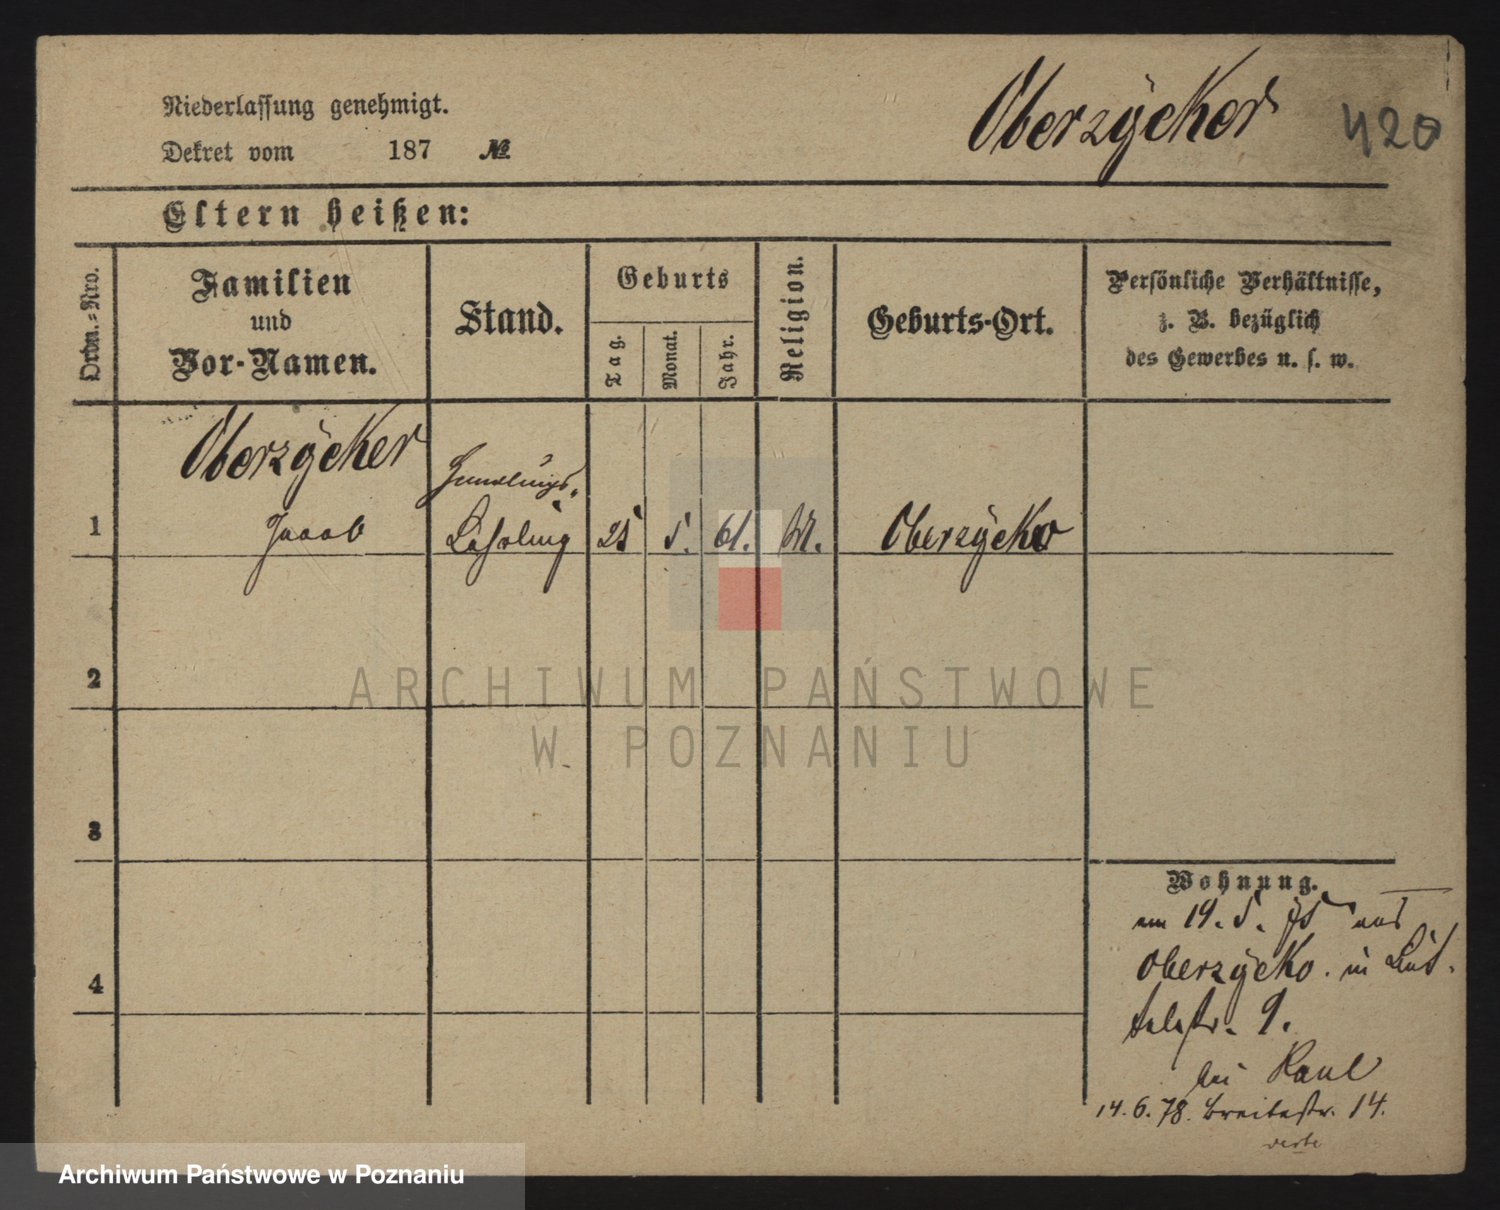 Niederlassung genehmigt.
Oberzÿcker 420
Dekret vom 187 №
Eltern heißen:
Ordn.-Nro.
Familien
und
Vor-Namen.
Stand.
Geburts
Tag.
Monat.
Jahr.
Religion.
Geburts-Ort.
Persönliche Verhältnisse,
z. B. bezüglich
des Gewerbes u. s. w.
Oberzÿcker
Handlungs-
1 Jacob Lehrling 25 5. 61. M. Oberzÿcko
2
ARCHIWUM PAŃSTWOWE
W POZNANIU
3
Wohnung.
am 19. 5. 75 aus
4 Oberzÿcko. in Büt-
telstr. 9.
bei Raul
14. 6. 78. Breitestr. 14.
Archiwum Państwowe w Poznaniu